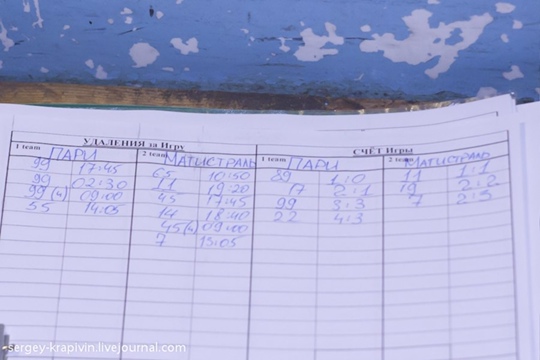 УДАЛЕНИЯ за Игру СЧЁТ Игры
1 team ПАРИ 2 team МАГИСТРАЛЬ 1 team ПАРИ 2 team МАГИСТРАЛЬ
99 17:45 65 10:50 89 1:0 11 1:1
99 02:30 11 19:20 17 2:1 19 2:2
99(ч) 09:00 45 17:45 99 3:3 7 2:3
55 14:05 14 18:40 22 4:3
45(ч) 09:00
7 15:05
sergey-krapivin.livejournal.com